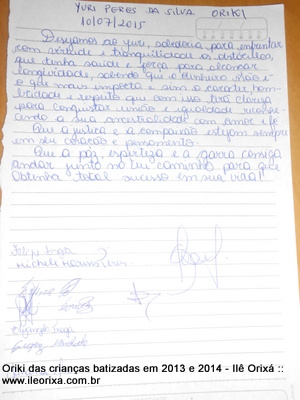 YURI PERES DA SILVA ORIKI
10/07/2015
Desejamos ao Yuri, sabedoria para enfrentar
com virtude e tranquilidade os obstáculos,
que tenha saúde e força para alcançar
longividade, sabendo que o dinheiro não é
o que mais importa e sim o caráter hom-
bridade e respeito que com isso tira clareza
para conquistar união e igualdade
ando a sua com amor e fé
Que a justiça e a compaixão estejam sempre
em seu coração e pensamento.
Que a paz, esperteza e a garra consiga
andar junto no teu caminho para que
obtenha total sucesso em sua vida!
Felipe
Michele
Oriki das crianças batizadas em 2013 e 2014 - Ilê Orixá ::
www.ileorixa.com.br